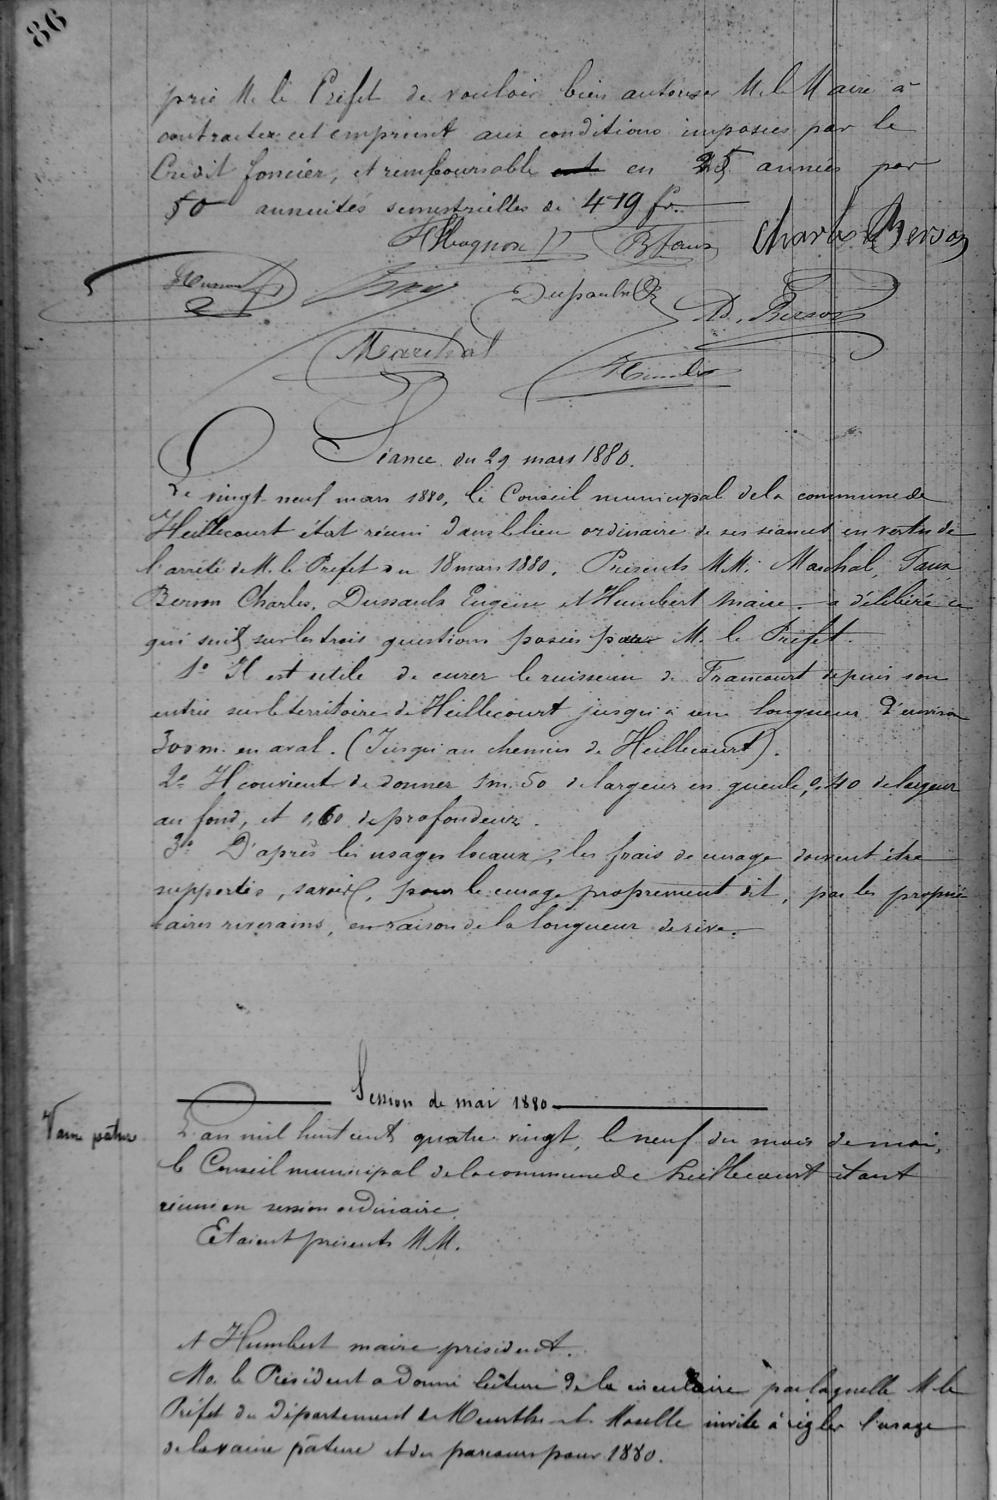 86
prie M. le Préfet de vouloir bien autoriser M. le Maire à
contracter cet emprunt aux conditions imposées par le
Crédit foncier, et remboursable en 25 années par
50 annuités semestrielles de 419 fr.
Charles Berson
Ad. Berson
Marchal
Humbert
Séance du 29 mars 1880.
Le vingt neuf mars 1880, le Conseil municipal de la commune de
Heillecourt était réuni dans le lieu ordinaire de ses séances en vertu de
l'arrêté de M. le Préfet du 18 mars 1880. Présents MM. Marchal,
Berson Charles, Eugène et Humbert Maire. a délibéré ce
qui suit sur les trois questions posées par M. le Préfet.
1° Il est utile de curer le ruisseau de Francourt depuis son
entrée sur le territoire de Heillecourt jusqu'à une longueur d'environ
300 m. en aval. (Jusqu'au chemin de Heillecourt).
2° Il convient de donner 1m.50 de largeur en gueule, 0,40 de largeur
au fond, et 0,60 de profondeur.
3° D'après les usages locaux, les frais de curage doivent être
supportés, savoir, pour le curage proprement dit, par les proprié-
taires riverains, en raison de la longueur de rive.
Session de mai 1880
Vaine pâture
L'an mil huit cent quatre vingt, le neuf du mois de mai,
le Conseil municipal de la commune de Heillecourt étant
réuni en session ordinaire.
Etaient présents MM.
et Humbert maire président.
Mr. le Président a donné lecture de la circulaire par laquelle M. le
Préfet du Département de Meurthe et Moselle invite à régler l'usage
de la vaine pâture et du parcours pour 1880.